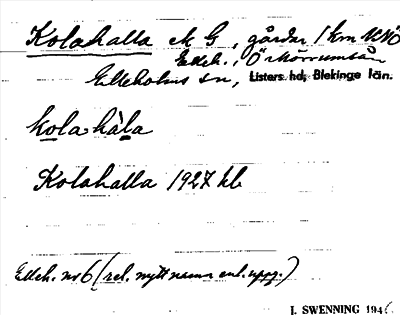 Kolahalla A G, gårdar 1 km NNÖ
Elleh., Ö Mörrumsån
Elleholms sn, Listers hd, Blekinge län.
kolahàla
Kolahalla 1927 kb
Elleh. nr 6 (rel. nytt namn enl. uppg.)
J. SWENNING 194